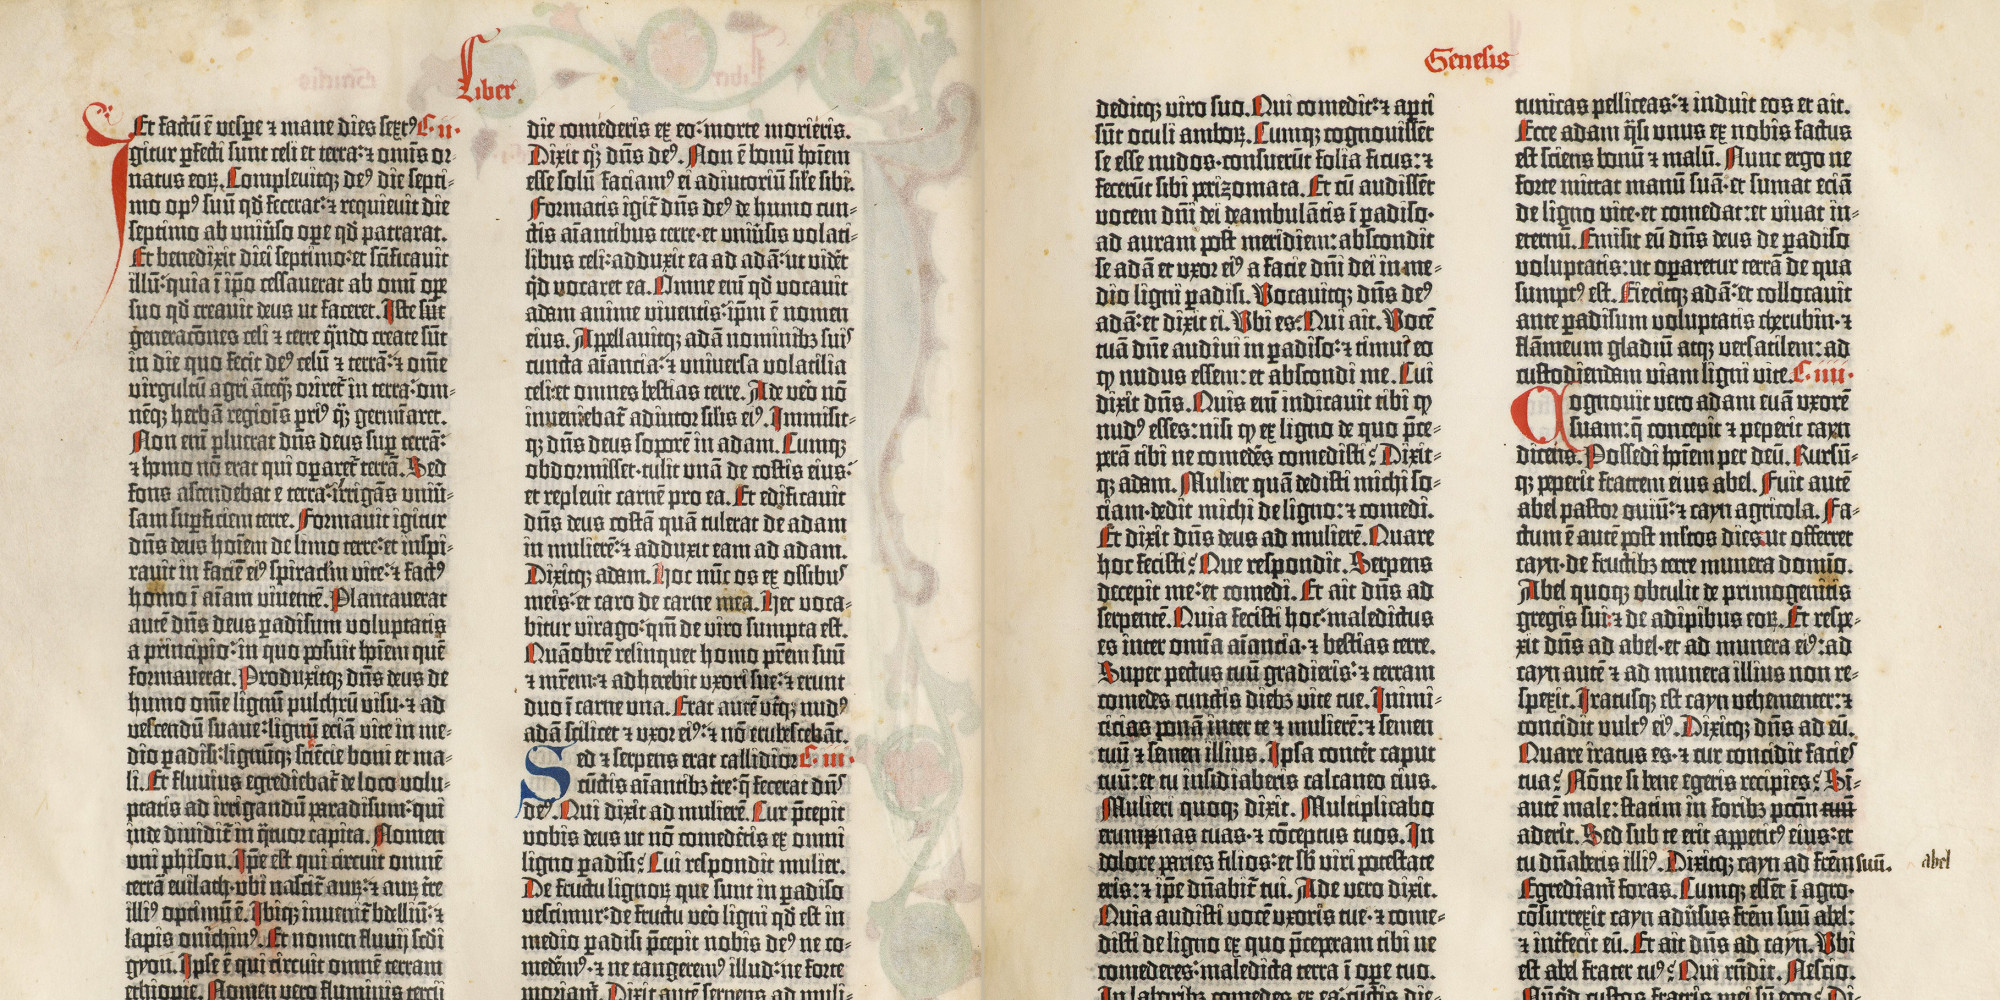 Liber
Et factū ē vespe ⁊ mane dies sextꝰ C. ii.
Igitur ꝑfecti sunt celi et terra: ⁊ omīs or-
natus eoꝝ. Complevitqꝫ deꝰ die septi-
mo opꝰ suū qd̄ fecerat: ⁊ requievit die
septimo ab univ̄so oꝑe qd̄ patrarat.
Et benedixit diei septimo: et sc̄ificavit
illū: quia ī ip̄o cessauerat ab omī oꝑe
suo qd̄ creavit deus ut faceret. Iste sūt
generacōnes celi ⁊ terre qn̄do create sūt
in die quo fecit deꝰ celū ⁊ terrā: ⁊ om̄e
virgultū agri ān̄teqͣ oriret̄ in terra: om-
nēqꝫ herbā regiois priꝰ qͣ germīaret.
Non eni pluerat dn̄s deus suꝑ terrā:
⁊ homo nō erat qui oꝑaret̄ terrā. Sed
fons ascendebat e terra: irrigās uniū-
sam suꝑficiem terre. Formavit igitur
dn̄s deus hoīem de limo terre: et inspi-
ravit in faciē eiꝰ spiraclm̄ vite: ⁊ factꝰ ē
homo ī aīam viventē. Plantauerat
autē dn̄s deus ꝑadisum voluptatis
a principio: in quo posuit hoīem quē
formauerat. Produxitqꝫ dn̄s deus de
humo om̄e lignū pulchrū visu · ⁊ ad
vescendū suave: lignū eciā vite in me-
dio ꝑadisi: lignūqꝫ sciēcie boni et ma-
li. Et fluvius egrediebat̄ de loco volu-
ptatis ad irrigandū paradisum: qui
inde dividit̄ in qͣtuor capita. Nomen
uni phison. Ip̄e est qui circuit omnē
terrā euilath: ubi nascit̄ auꝝ: ⁊ auꝝ tr̄e
illiꝰ optimū ē. Ibiqꝫ invenit̄ bdelliū: ⁊
lapis onichinꝰ. Et nomen fluvij scd̄i
gyon. Ipse ē qui circuit omnē terram
ethiopie. Nomen vero fluminis tercij
die comederis ex eo: morte morieris.
Dixit qꝫ dn̄s deꝰ. Non ē bonū hoīem
esse solū: faciamꝰ ei adiutoriū sil̄e sibi.
Formatis igit̄ dn̄s deꝰ de humo cun-
ctis aīantibus terre · et univ̄sis volati-
libus celi: adduxit ea ad adā: ut vidēt
qd̄ vocaret ea. Omne eni qd̄ vocavit
adam anime viventis: ip̄m ē nomen
eius. Appellavitqꝫ adā nominibꝫ suis
cuncta aīancia: ⁊ universa volatilia
celi: et omnes bestias terre. Ade vēo nō
inveniebat̄ adiutor silis eiꝰ. Immisit-
qꝫ dn̄s deus soporē in adam. Cumqꝫ
obdormisset: tulit unā de costis eius:
et replevit carnē pro ea. Et edificavit
dn̄s deus costā quā tulerat de adam
in mulierē: ⁊ adduxit eam ad adam.
Dixitqꝫ adam. Hoc nūc os ex ossibus
meis: et caro de carne mea. Hec voca-
bitur virago: qm̄ de viro sumpta est.
Quāobrē relinquet homo pr̄em suū
⁊ mr̄em: ⁊ adherebit uxori sue: ⁊ erunt
duo ī carne una. Erat autē ut̄qꝫ nudꝰ
adā scilicet ⁊ uxor eiꝰ: ⁊ nō erubescebāt.
Sed ⁊ serpens erat callidior C. iii.
cūctis aīantibꝫ tr̄e: q̄ fecerat dn̄s
deꝰ. Qui dixit ad mulierē. Cur p̄cepit
vobis deus ut nō comedētis ex omni
ligno ꝑadisi? Cui respondit mulier.
De fructu lignoꝝ que sunt in ꝑadiso
vescimur: de fructu vēo ligni qd̄ est in
medio ꝑadisi p̄cepit nobis deꝰ ne co-
medemꝰ · ⁊ ne tangeremꝰ illud: ne forte
moriam̄. Dixit autē serpens ad muli-
Genesis
deditqꝫ viro suo. Qui comedit: ⁊ aꝑti
sūt oculi amboꝝ. Cumqꝫ cognouissēt
se esse nudos · consuerūt folia ficus: ⁊
fecerūt sibi perizomata. Et cū audissēt
vocem dn̄i dei deambulātis ī ꝑadiso
ad auram post meridiem: abscondit
se adā et uxor eiꝰ a facie dn̄i dei in me-
dio ligni ꝑadisi. Vocavitqꝫ dn̄s deꝰ
adā: et dixit ei. Ubi es? Qui ait. Vocē
tuā dn̄e audivi in ꝑadiso: ⁊ timui eo
ꝙ nudus essem: et abscondi me. Cui
dixit dn̄s. Quis eni indicavit tibi ꝙ
nudꝰ esses: nisi ꝙ ex ligno de quo p̄ce-
perā tibi ne comedēs comedisti? Dixit-
qꝫ adam. Mulier quā dedisti michi so-
ciam · dedit michi de ligno: ⁊ comedi.
Et dixit dn̄s deus ad mulierē. Quare
hoc fecisti? Que respondit. Serpens
decepit me: et comedi. Et ait dn̄s ad
serpentē. Quia fecisti hoc: maledictus
es inter omīa aīancia · ⁊ bestias terre.
Super pectus tuū gradieris: ⁊ terram
comedes cunctis diebꝫ vite tue. Inimi-
cicias ponā inter te ⁊ mulierē: ⁊ semen
tuū ⁊ semen illius. Ipsa contēt caput
tuū: et tu insidiaberis calcaneo eius.
Mulieri quoqꝫ dixit. Multiplicabo
erumpnas tuas · ⁊ cōceptus tuos. In
dolore paries filios: et sb̄ viri potestate
eris: ⁊ ip̄e dn̄abit̄ tui. Ade vero dixit.
Quia audisti vocē uxoris tue · ⁊ come-
disti de ligno ex quo p̄ceperam tibi ne
comederes: maledicta terra ī oꝑe tuo.
In laboribꝫ comedes ex ea cūctis die-
tunicas pelliceas: ⁊ induit eos et ait.
Ecce adam qͣsi unus ex nobis factus
est sciens bonū ⁊ malū. Nunc ergo ne
forte mittat manū suā · et sumat eciā
de ligno vite · et comedat: et vivat in-
eternū. Emisit eū dn̄s deus de ꝑadiso
voluptatis: ut oꝑaretur terrā de qua
sumptꝰ est. Eiecitqꝫ adā: et collocavit
ante ꝑadisum voluptatis cherubin · ⁊
flāmeum gladiū atqꝫ versatilem: ad
custodiendam viam ligni vite. C. iiii.
Cognovit vero adam euā uxorē
suam: q̄ concepit ⁊ peperit cayn
dicens. Possedi hoīem per deū. Rursū-
qꝫ peperit fratrem eius abel. Fuit autē
abel pastor oviū: ⁊ cayn agricola. Fa-
ctum ē autē post ml̄tos dies: ut offerret
cayn · de fructibꝫ terre munera domīo.
Abel quoqꝫ obtulit de primogenitis
gregis sui: ⁊ de adipibus eoꝝ. Et respe-
xit dn̄s ad abel · et ad munera eiꝰ: ad
cayn autē ⁊ ad munera illius non re-
spexit. Iratusqꝫ est cayn vehementer: ⁊
concidit vultꝰ eiꝰ. Dixitqꝫ dn̄s ad eū.
Quare iratus es · ⁊ cur concidit facies
tua? Nōne si bene egeris recipies? Si-
autē male: statim in foribꝫ pctm̄ tuū
aderit. Sed sub te erit appetitꝰ eius: et
tu dn̄aberis illiꝰ. Dixitqꝫ cayn ad fr̄em suū. abel
Egrediam̄ foras. Cumqꝫ essēt ī agro ·
cōsurrexit cayn adūsus fr̄em suū abel:
⁊ int̄fecit eū. Et ait dn̄s ad cayn. Ubi
est abel frater tuꝰ? Qui rn̄dit. Nescio.
Nūqd̄ custos fratris mei sū ego? Di-